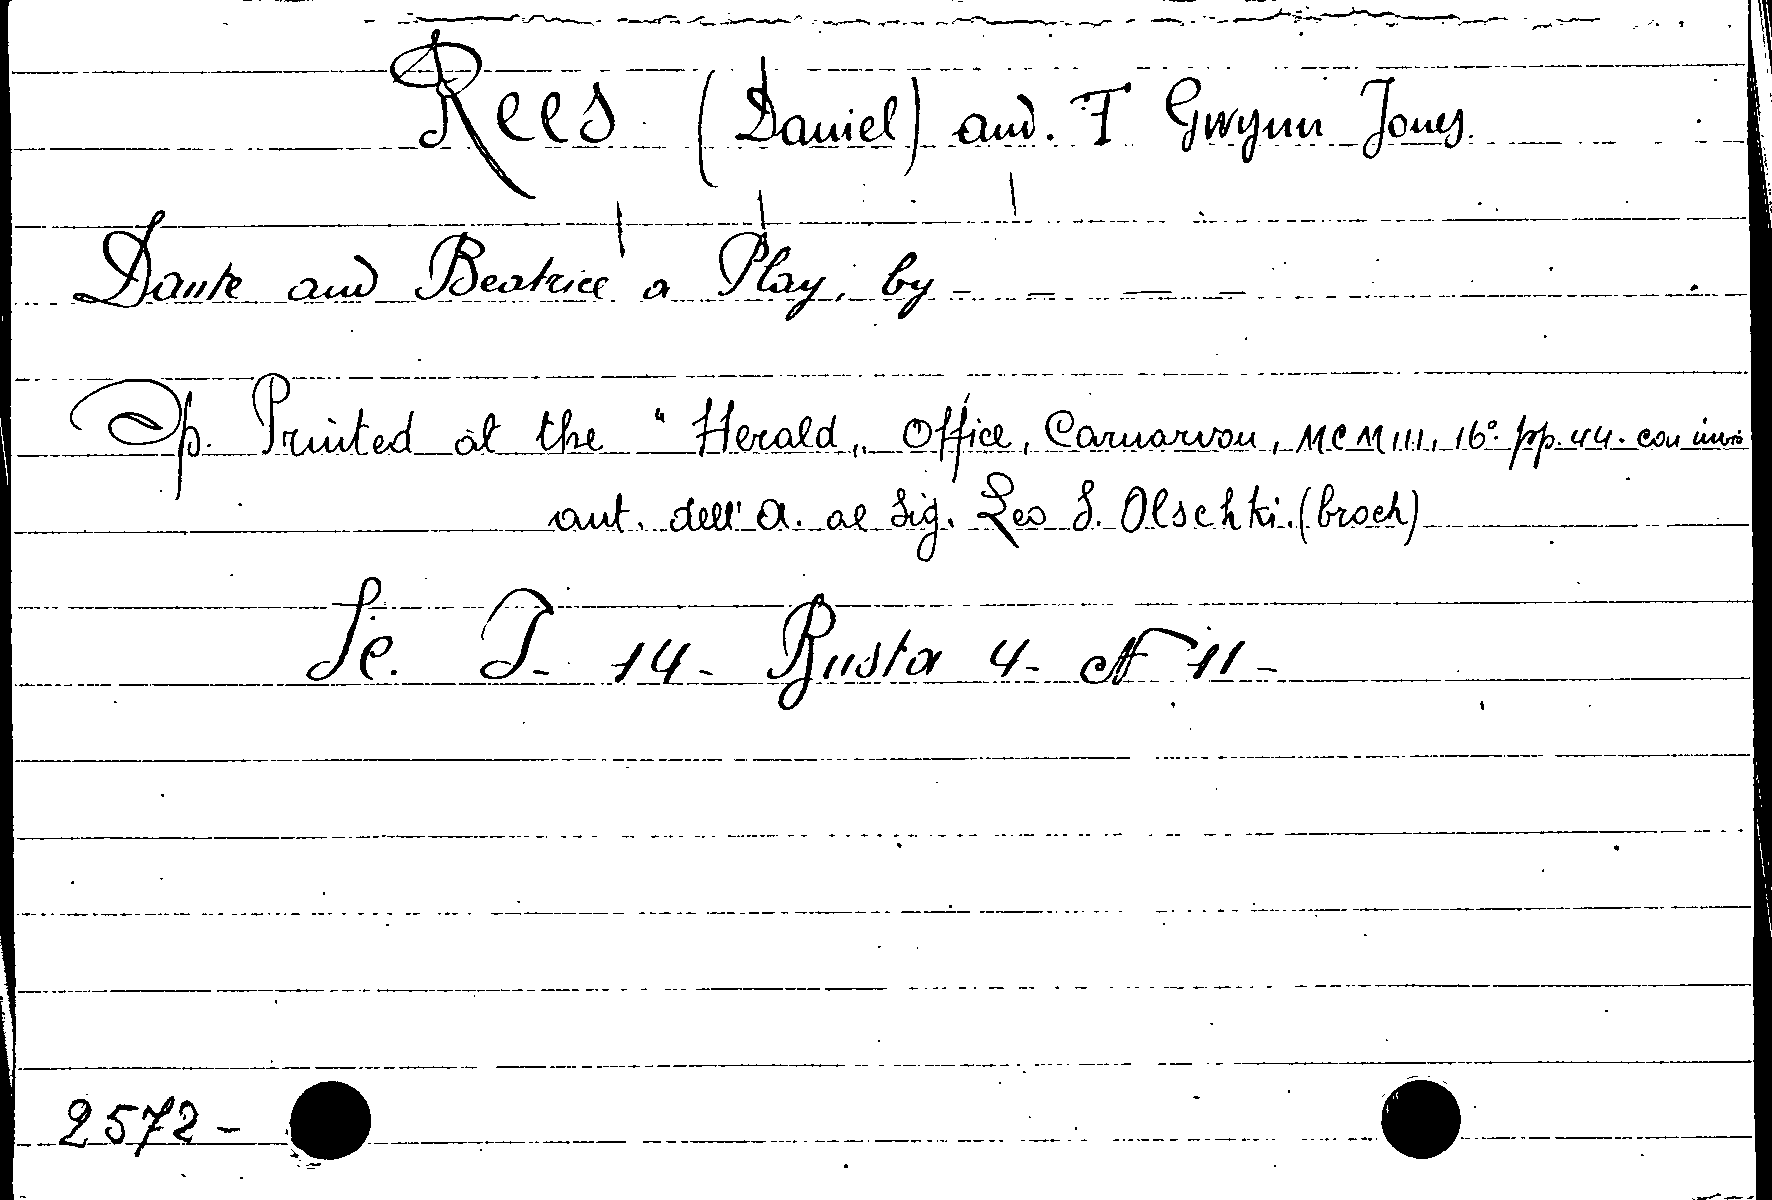 Rees (Daniel) and. T Gwynn Jones.
Dante and Beatrice a Play, by - - - -
Op. Printed at the "Herald„ Office, Carnarvon, MCMIII, 16° pp. 44. con invio
aut. dell' A. al Sig. Leo S. Olschki. (broch)
Sc. I- 14- Busta 4- N 11-
2572-